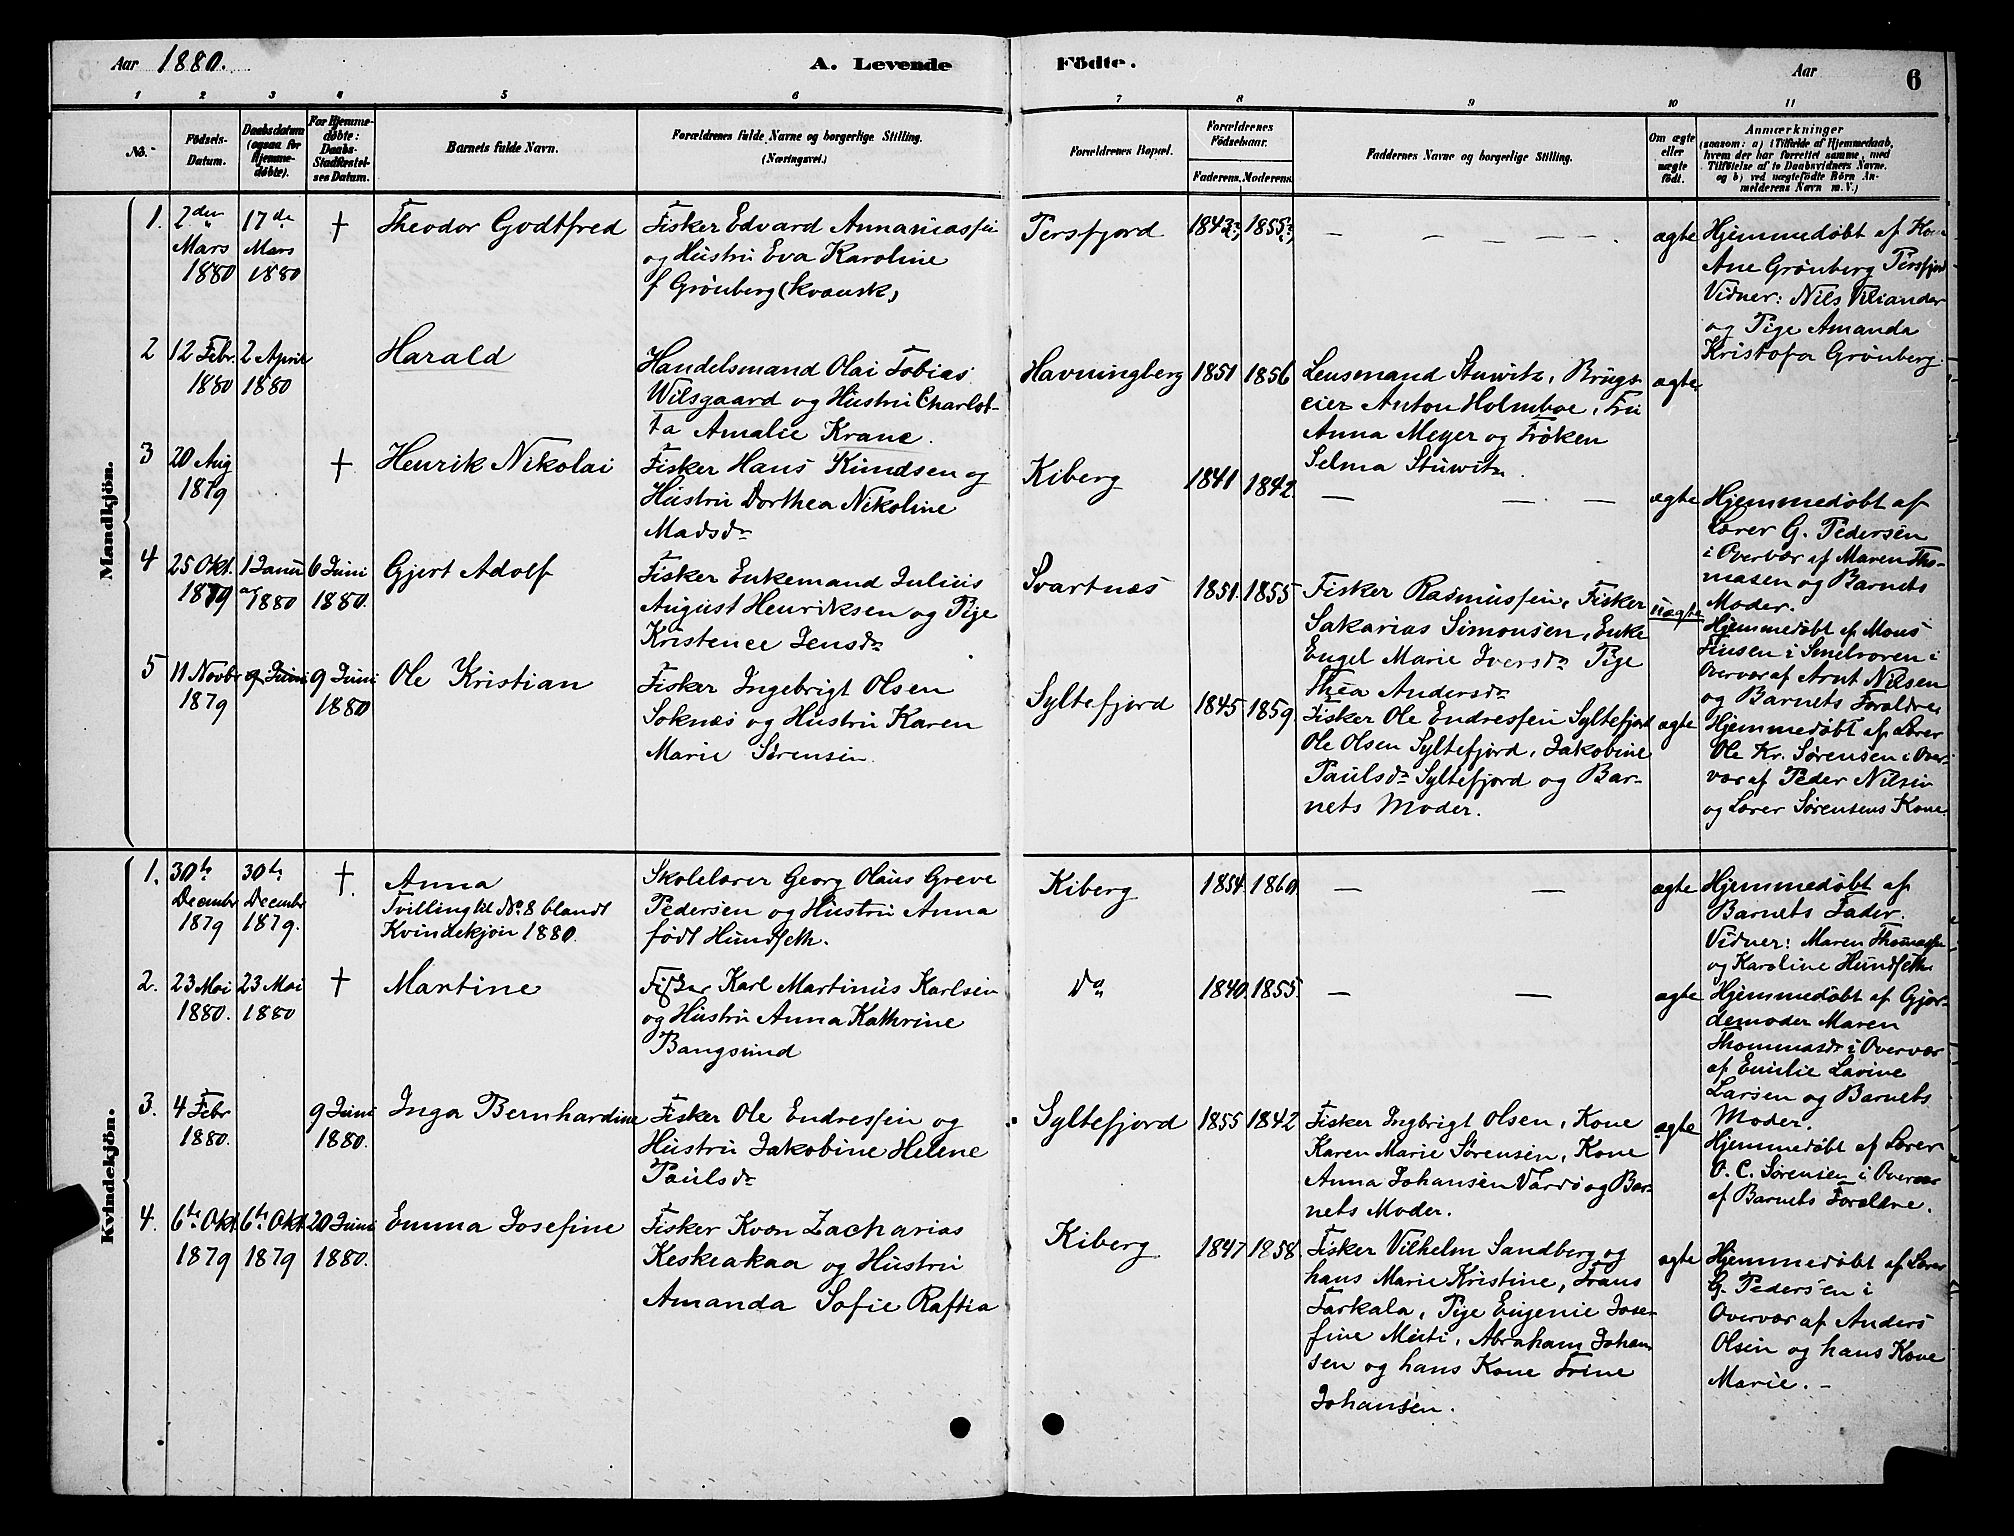 Aar 1880.
A. Levende
Födte.
Aar
6
1 2 3 4 5 6 7 8 9 10 11
No.
Födsels-
Datum.
Daabsdatum
(ogsaa for
Hjemme-
døbte).
For Hjemme-
døbte:
Daabs-
Stadfæstel-
ses Datum.
Barnets fulde Navn.
Forældrenes fulde Navne og borgerlige Stilling.
(Næringsvei.)
Forældrenes Bopæl.
Forældrenes
Födselsaar.
Faderens. Moderens.
Faddernes Navne og borgerlige Stilling.
Om ægte
eller
uægte
født.
Anmærkninger
(saasom: a) i Tilfælde af Hjemmedaab,
hvem der har forrettet samme, med
Tilföielse af to Daabsvidners Navne,
og b) ved uægtefödte Börn An-
melderens Navn m. V.)
Mandkjön.
1.
2den
Mars
1880
17de
Mars
1880
†
Theodor Godtfred
Fisker Edvard Annaniassen
og Hustru Eva Karoline
f Grönberg (kvænsk)
Persfjord
1843 1855
— — — — —
ægte
Hjemmedøbt af
Ane Grønberg Persfjord
Vidner: Nils Viliander
og Pige Amanda
Kristofa Grønberg.
2
12 Febr.
1880
2 April
1880
Harald
Handelsmand Olai Tobias
Wilsgaard og Hustru Charlot-
ta Amalie Krane.
Havningberg
1851 1856
Lensmand Stuwitz, Brugs-
eier Anton Holmboe, Fru
Anna Meyer og Frøken
Selma Stuwitz.
ægte
3
20 Aug
1879
†
Henrik Nikolai
Fisker Hans Knudsen og
Hustru Dorthea Nikoline
Madsdr
Kiberg
1841 1842.
— — —
ægte
Hjemmedøbt af
Lærer G. Pedersen
i Overvær af Maren Tho-
masen og Barnets
Moder.
4
25 Okt.
1879
1 Janu
ar 1880
6 Juni
1880.
Gjert Adolf
Fisker Enkemand Julius
August Henriksen og Pige
Kristence Jensdr
Svartnæs
1851. 1855
Fisker Rasmussen, Fisker
Sakarias Simonsen, Enke
Engel Marie Iversdr Pige
Thea Andersdr
uægte
Hjemmedøbt af Mons
Finsen i Smelroren i
Overvær af Arnt Nilsen
og Barnets Foraldre.
5
11 Novbr
1879
9 Juni
9 Juni
1880
Ole Kristian
Fisker Ingebrigt Olsen
Soknæs og Hustru Karen
Marie Sørensen.
Syltefjord
1845. 1859.
Fisker Ole Endressen Syltefjord
Ole Olsen Syltefjord, Jakobine
Paulsdr Syltefjord og Bar-
nets Moder.
ægte
Hjemmedøbt af Lærer
Ole Kr. Sørensen i Over-
vær af Peder Nilsen
og Lærer Sørensens Kone
Kvindekjön.
1.
30te
Decembr
1879
30te
Decembr
1879.
†
Anna
Tvilling til No. 8 blandt
Kvindekjøn 1880.
Skolelærer Georg Olaus Greve
Pedersen og Hustru Anna
født Hundseth.
Kiberg
1854. 1860
— —
ægte
Hjemmedøbt af
Barnets Fader.
Vidner: Maren Thomassen
og Karoline Hundseth
2.
23 Mai
1880.
23 Mai
1880
†
Martine
Fisker Karl Martinus Karlsen
og Hustru Anna Kathrine
Bangsund
Do
1840. 1855.
— —
ægte
Hjemmedøbt af Gjor-
demoder Maren
Thommasdr i Overvær
af Emilie Lavine
Larsen og Barnets
Moder.
3.
4 Febr
1880.
9 Juni
1880.
Inga Bernhardine
Fisker Ole Endressen og
Hustru Jakobine Helene
Paulsdr
Syltefjord
1855 1842
Fisker Ingbrigt Olsen, Kone
Karen Marie Sørensen, Kone
Anna Johansen Vardö og Bar-
nets Moder.
ægte
Hjemmedøbt af Lærer
O. C. Sørensen i Overvær
af Barnets Foraldre.
4.
6te Okt.
1879
6te Okt.
1879
20 Juni
1880.
Emma Josefine
Fisker Kvæn Zacharias
Keskeakaa og Hustru
Amanda Sofie Raftia
Kiberg
1847 1858
Fisker Vilhelm Sandberg og
hans Marie Kristine, Frans
Farkala, Pige Eugenie Jose-
fine Misti, Abraham Johan-
sen og hans Kone Trine
Johansen.
ægte
Hjemmedøbt af Lærer
G. Pedersen i
Overvær af Anders
Olsen og hans Kone
Marie. –